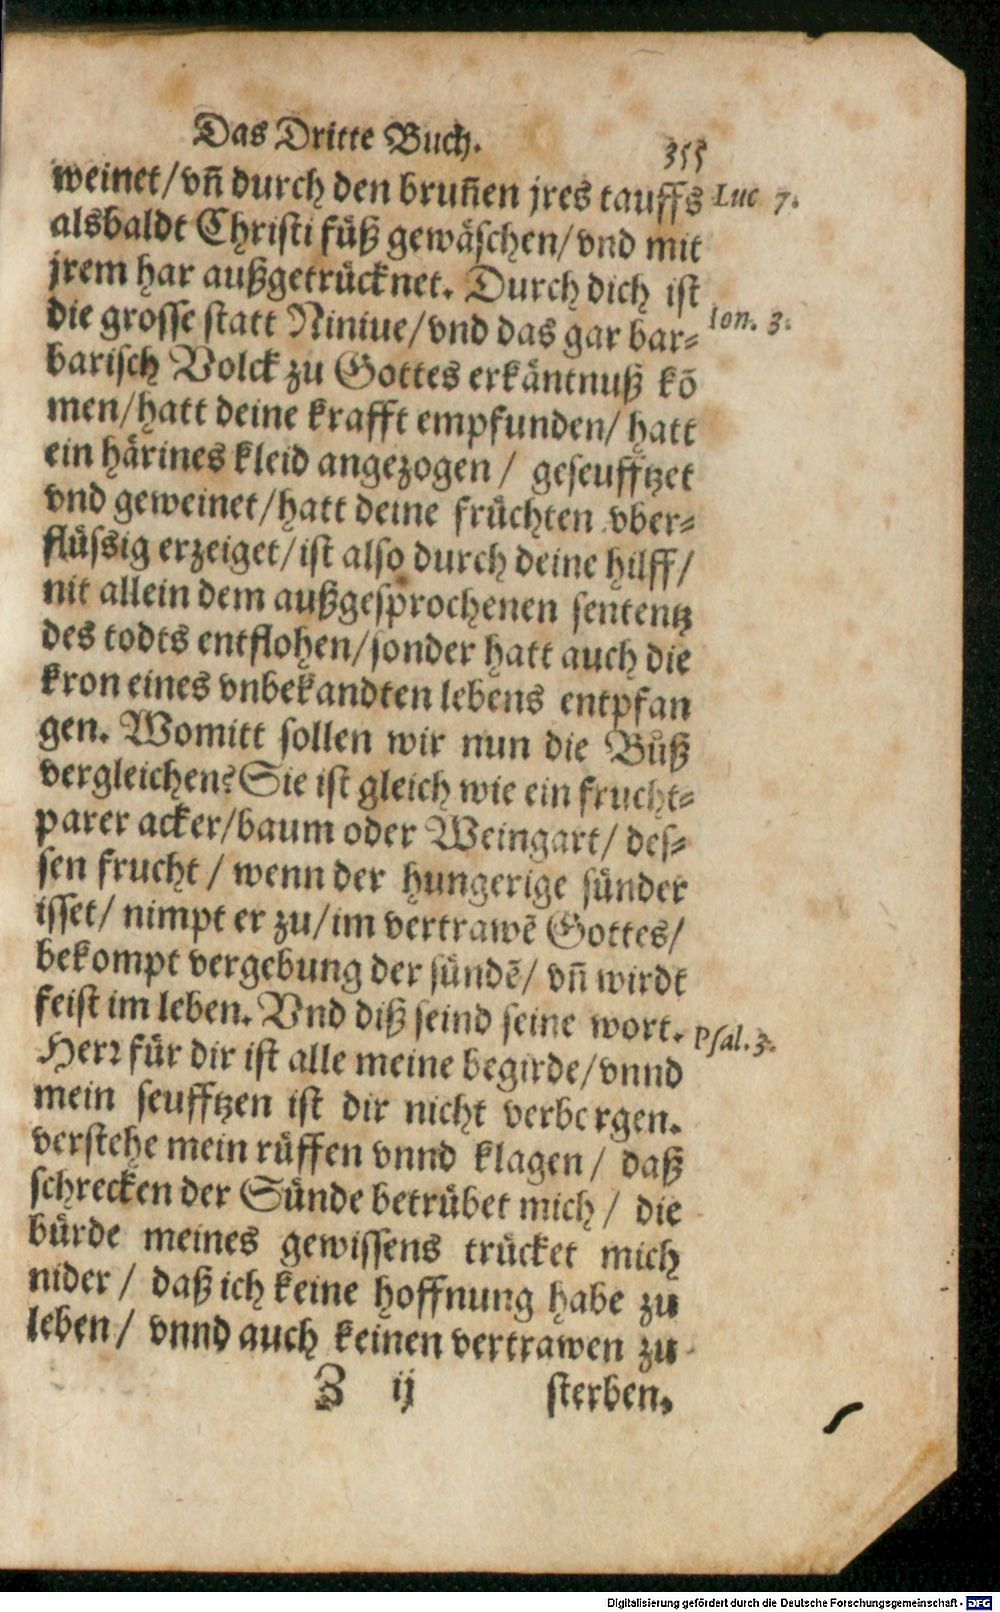 Das Dritte Buch.
355
weinet/vn̄ durch den brun̄en jres tauffs
Luc 7.
alsbaldt Christi füß gewäschen/vnd mit
jrem har außgetrücknet. Durch dich ist
die grosse statt Niniue/vnd das gar bar⸗
Ion. 3.
barisch Volck zu Gottes erkäntnuß kō
men/hatt deine krafft empfunden/hatt
ein härines kleid angezogen/ geseufftzet
vnd geweinet/hatt deine früchten vber⸗
flüssig erzeiget/ist also durch deine hilff/
nit allein dem außgesprochenen sententz
des todts entflohen/sonder hatt auch die
kron eines vnbekandten lebens entpfan
gen. Womitt sollen wir nun die Bůß
vergleichen? Sie ist gleich wie ein frucht⸗
parer acker/baum oder Weingart/ des⸗
sen frucht / wenn der hungerige sünder
isset/ nimpt er zu/im vertrawē Gottes/
bekompt vergebung der sündē/ vn̄ wirdt
feist im leben. Vnd diß seind seine wort.
Psal. 3.
Herꝛ für dir ist alle meine begirde/vnnd
mein seufftzen ist dir nicht verborgen.
verstehe mein rüffen vnnd klagen/ daß
schrecken der Sünde betrübet mich/ die
bürde meines gewissens trücket mich
nider/ daß ich keine hoffnung habe zu
leben/ vnnd auch keinen vertrawen zu
Z ij
sterben.
Digitalisierung gefördert durch die Deutsche Forschungsgemeinschaft - DFG